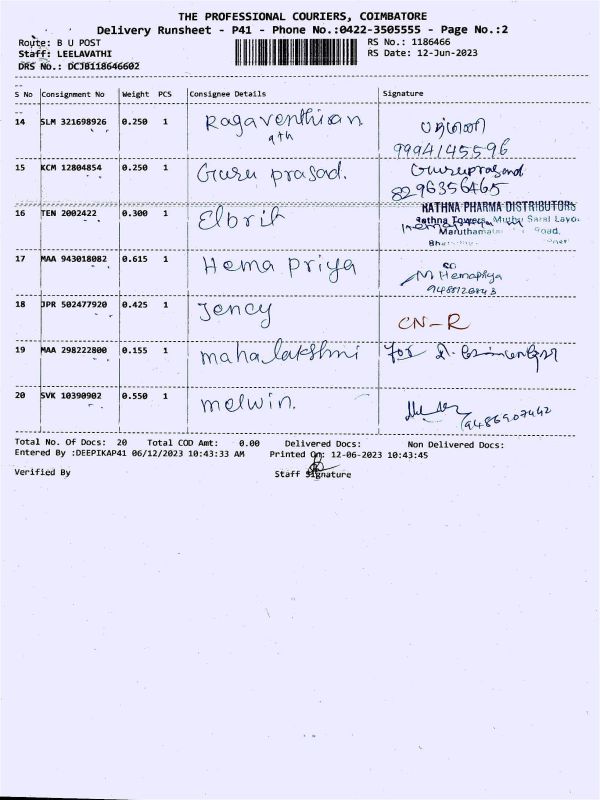 THE PROFESSIONAL COURIERS, COIMBATORE
Delivery Runsheet - P41 - Phone No.:0422-3505555 - Page No.:2
Route: B U POST
RS No.: 1186466
Staff: LEELAVATHI
RS Date: 12-Jun-2023
DRS No.: DCJB118646602
S No Consignment No Weight PCS Consignee Details Signature
14 SLM 321698926 0.250 1 Ragaventhiran
9th
9994145596
15 KCM 12804854 0.250 1 Guru prasad. Guruprasad
8296356465
16 TEN 2002422 0.300 1 Elbrit RATHNA PHARMA DISTRIBUTORS
Rathna Towers, Muthu Saral Layo.
Road,
17 MAA 943018082 0.615 1 Hema Priya M Hemapriya
18 JPR 502477920 0.425 1 Jency CN-R
19 MAA 298222800 0.155 1 mahalakshmi for
20 SVK 10390902 0.550 1 melwin.
9486907442
Total No. Of Docs: 20 Total COD Amt: 0.00 Delivered Docs: Non Delivered Docs:
Entered By :DEEPIKAP41 06/12/2023 10:43:33 AM Printed On: 12-06-2023 10:43:45
Verified By Staff Signature